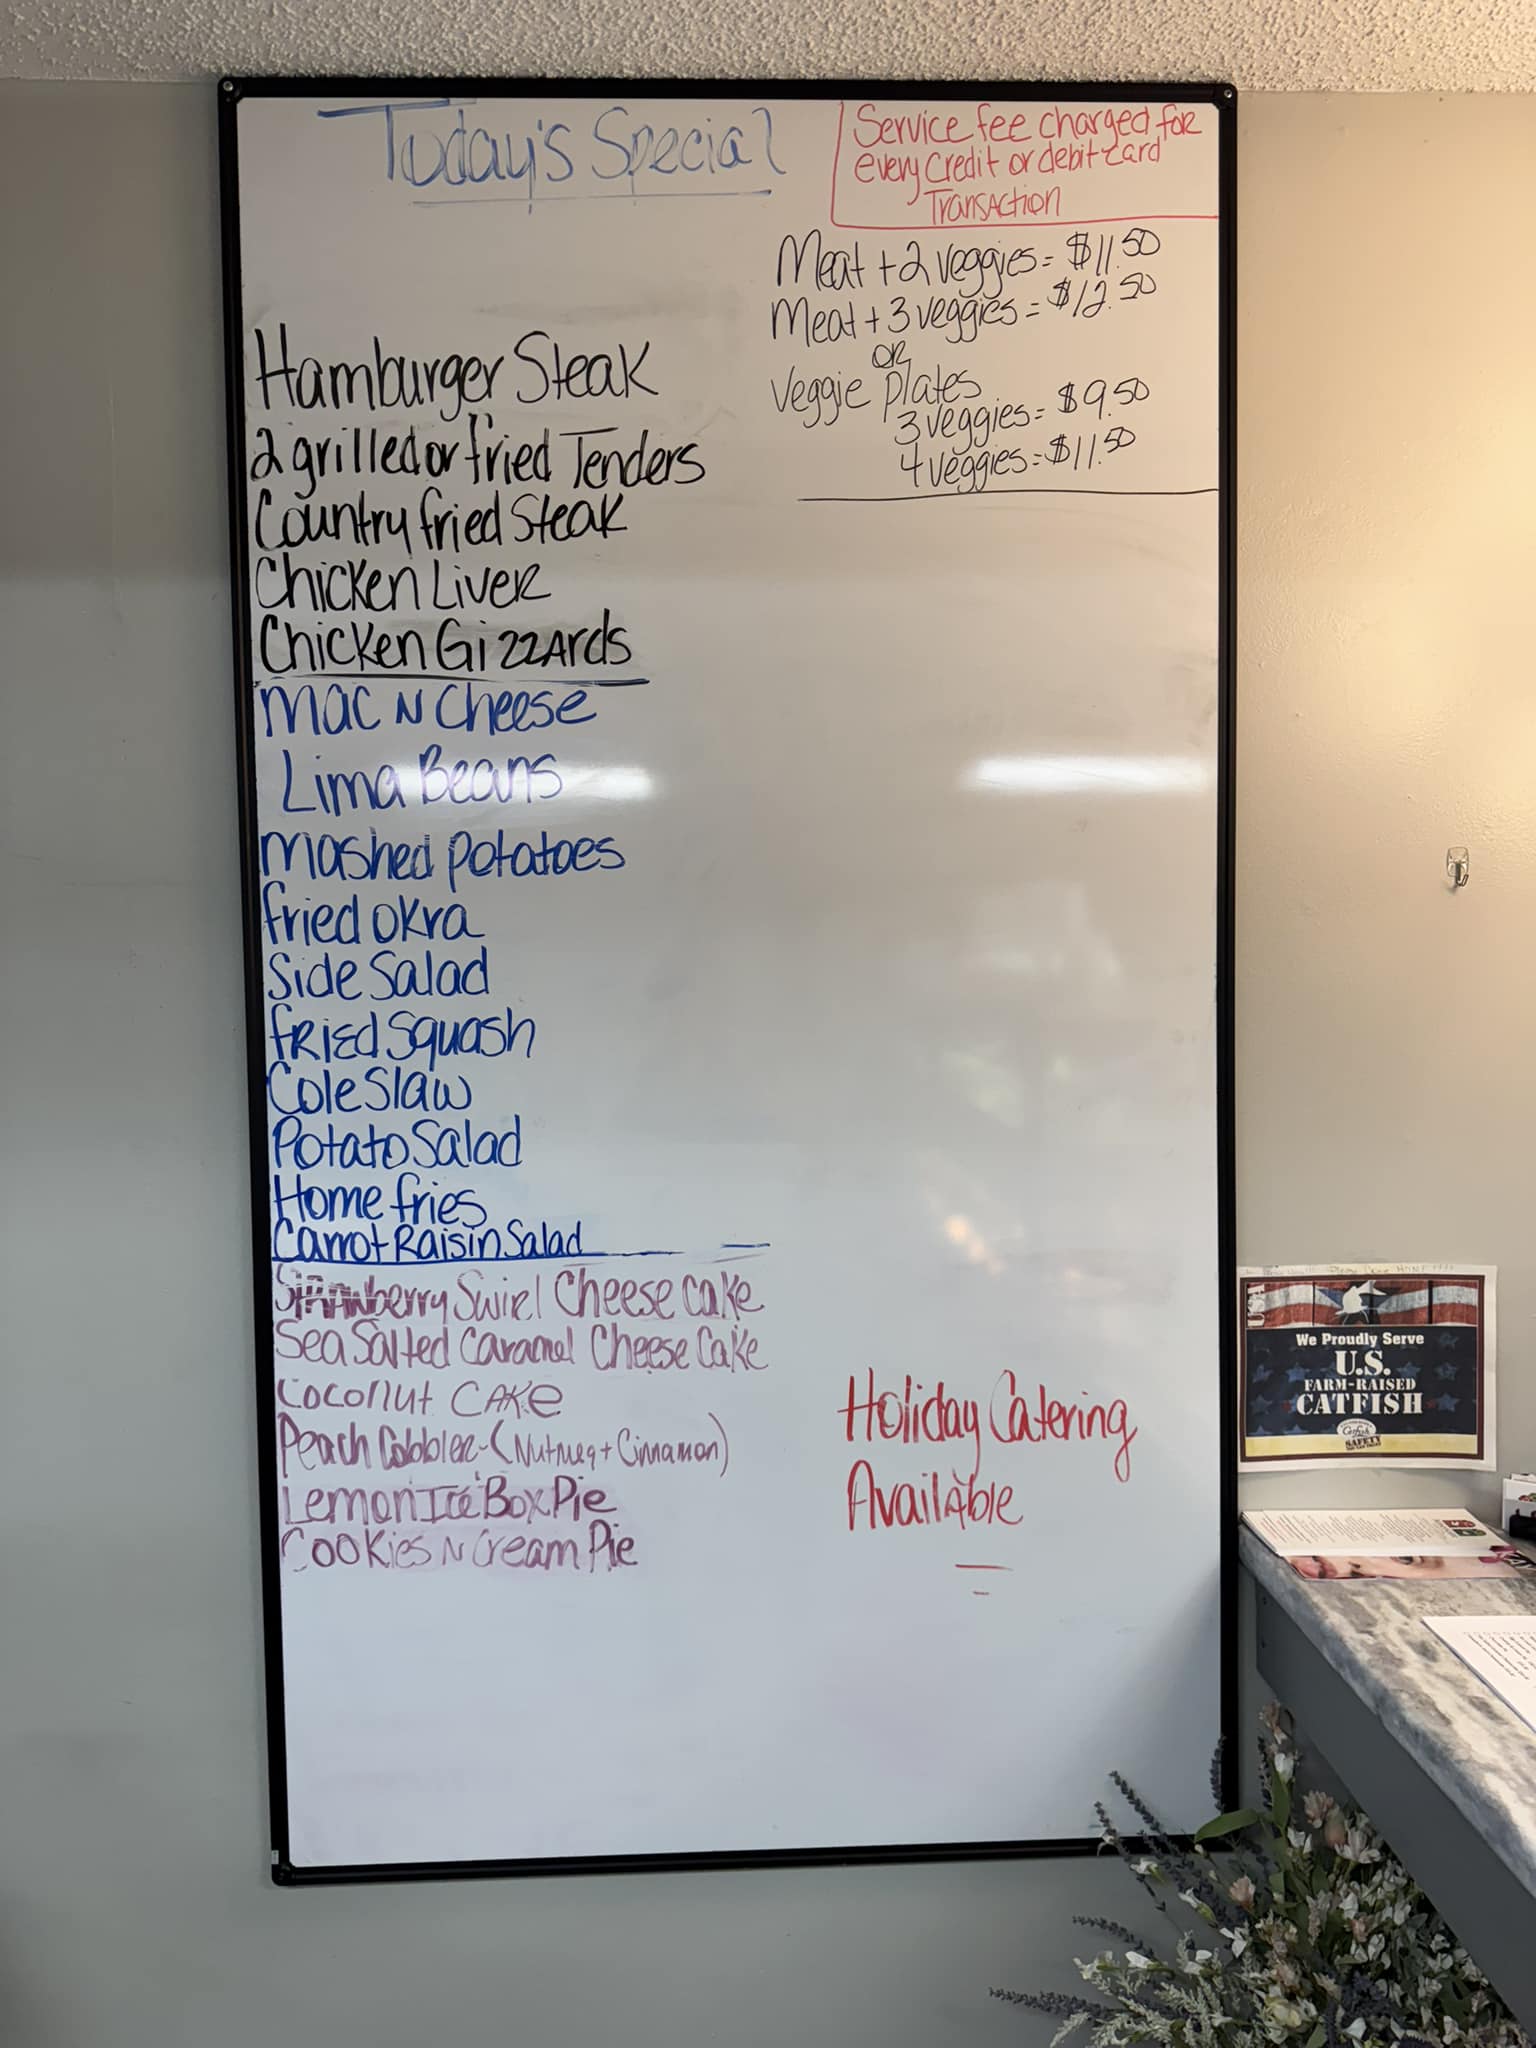 Today's Special
Service fee charged for
every Credit or debit card
Transaction
Meat + 2 veggies = $11.50
Meat + 3 veggies = $12.50
OR
Veggie Plates
3 veggies = $9.50
4 veggies = $11.50
Hamburger Steak
2 grilled or fried Tenders
Country fried Steak
Chicken Liver
Chicken Gizzards
Mac N Cheese
Lima Beans
Mashed Potatoes
Fried Okra
Side Salad
Fried Squash
Cole Slaw
Potato Salad
Home fries
Carrot Raisin Salad
Strawberry Swirl Cheese Cake
Sea Salted Caramel Cheese Cake
Coconut Cake
Peach Cobbler - (Nutmeg + Cinnamon)
Lemon Ice Box Pie
Cookies N Cream Pie
Holiday Catering
Available
We Proudly Serve
U.S.
FARM-RAISED
CATFISH
Catfish
SAFETY